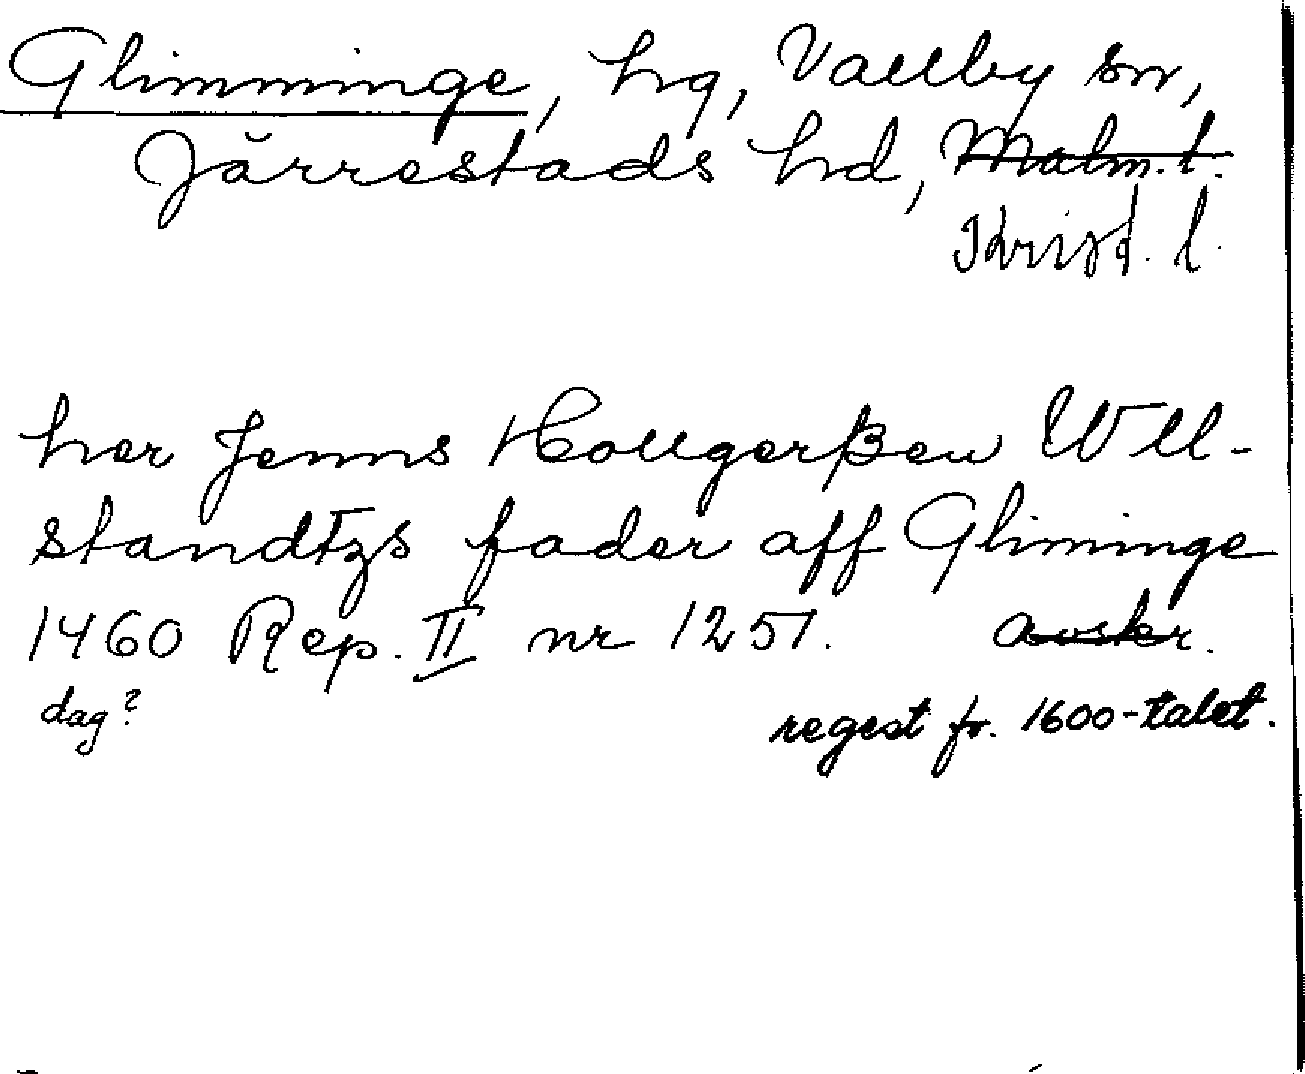 Glimminge, hg, Vallby sn,
Järrestads hd, Malm. l.
Krist. l.
her Jenns HollgerßenWll-
standtzs fader aff Gliminge
1460 Rep. II nr 1251. avskr.
dag? regest fr. 1600-talet.